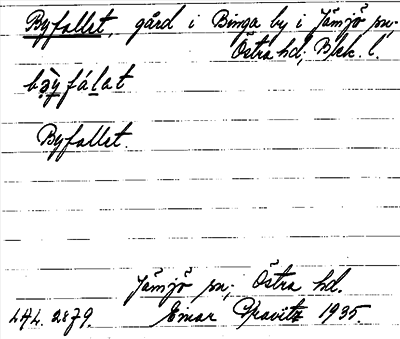 Byfallet, gård i Binga by i Jämjö sn.
Östra hd, Blek. l.
Byfallet.
Jämjö sn, Östra hd.
LAL. 2879. Einar Kravitz 1935.